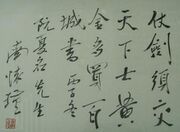 仗劍須交
天下士黃
金多買百
城書 冬
先生
南懷瑾